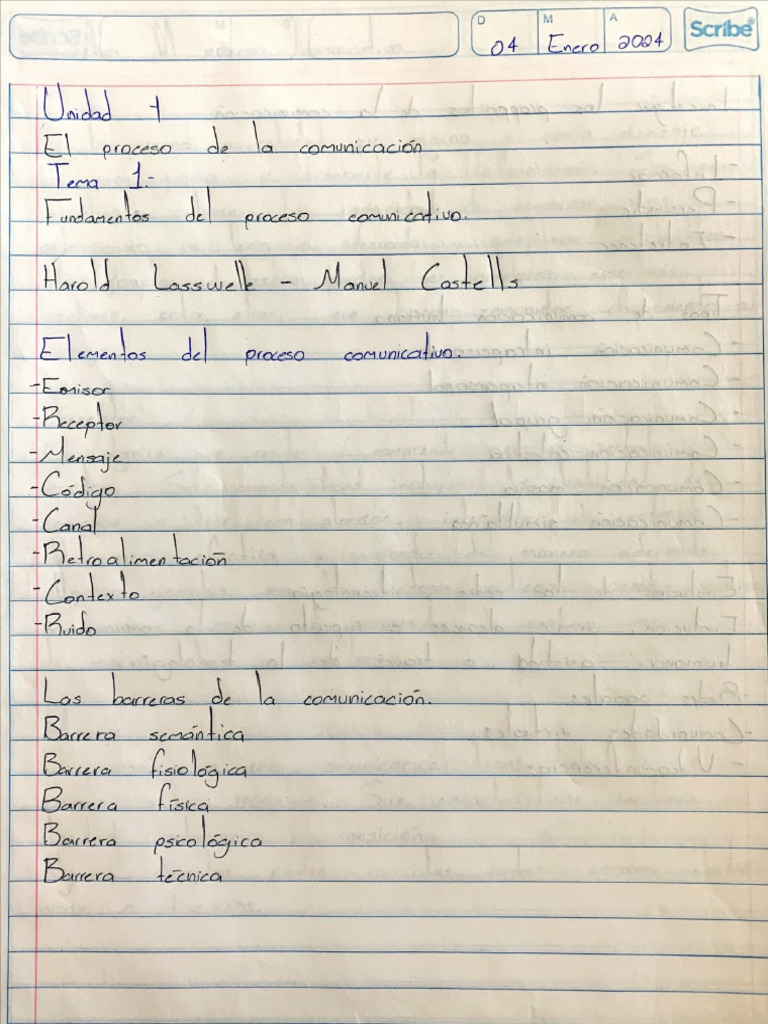 D M A
04 Enero 2024
Scribe
Unidad 1
El proceso de la comunicación
Tema 1.-
Fundamentos del proceso comunicativo.
Harold Lasswelle - Manuel Castells
Elementos del proceso comunicativo.
-Emisor
-Receptor
-Mensaje
-Código
-Canal
-Retroalimentación
-Contexto
-Ruido
Las barreras de la comunicación.
Barrera semántica
Barrera fisiológica
Barrera física
Barrera psicológica
Barrera técnica